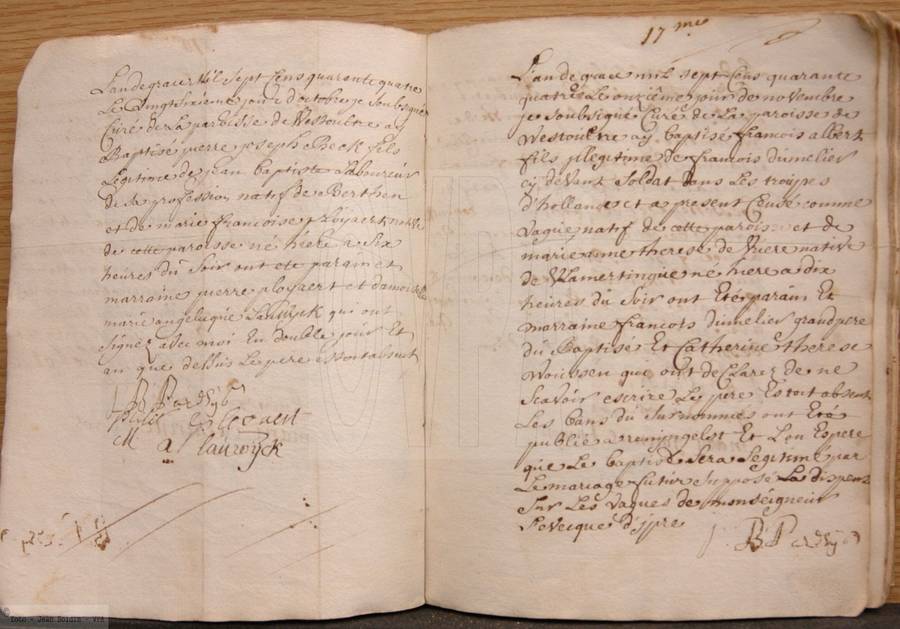 L'an de grace mil sept Cens quarente quatre
Le vingt sixieme jour d'octobre je soubsigné
Curé de La paroisse de Westoutre ay
Baptisé pierre joseph Beck fils
Legitime de jean baptiste Laboureur
de sa profession natif de Berthen
et de marie francoise ployaert native
de cette paroisse né hiere a Six
heures du Soir ont eté parain et
marraine pierre ployaert et damoiselle
marie angelique Lauwyck qui ont
Signez avec moi En double jour Et
an que dessus Le pere estont absent
Lauwyck
17 me
L'an de grace mil sept Cens quarante
quatre Le onzième jour de novembre
je Soubsigné Curé de La paroisse de
Westoutre ay baptisé francois albert
fils illegitime de francois dumelier
cy devant Soldat dans Les troupes
d'hollande et a present Censé comme
vague natif de cette paroisse et de
marie anne therese de Vriere native
de Vlamertingue né hiere a dix
heures du Soir ont Eté parain Et
marraine francois dumelier grand pere
du Baptisé Et Catherine therese
Woussen que ont declarez de ne
Scavoir escrire Le pere Estoit absent
Les bans du Surnommés ont Eté
publié a reningelst Et L'on Espere
que Le baptisé Sera Legitime par
Le mariage futur Supposé La dispense
Sur Les vagues de monseigneur
L'evecque d'ypre